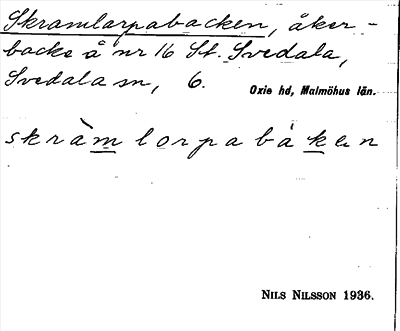 Skramlarpabacken, åker-
backe å nr 16 St. Svedala,
Svedala sn, 6.
Oxie hd, Malmöhus län.
skràmlorpabáken
NILS NILSSON 1936.